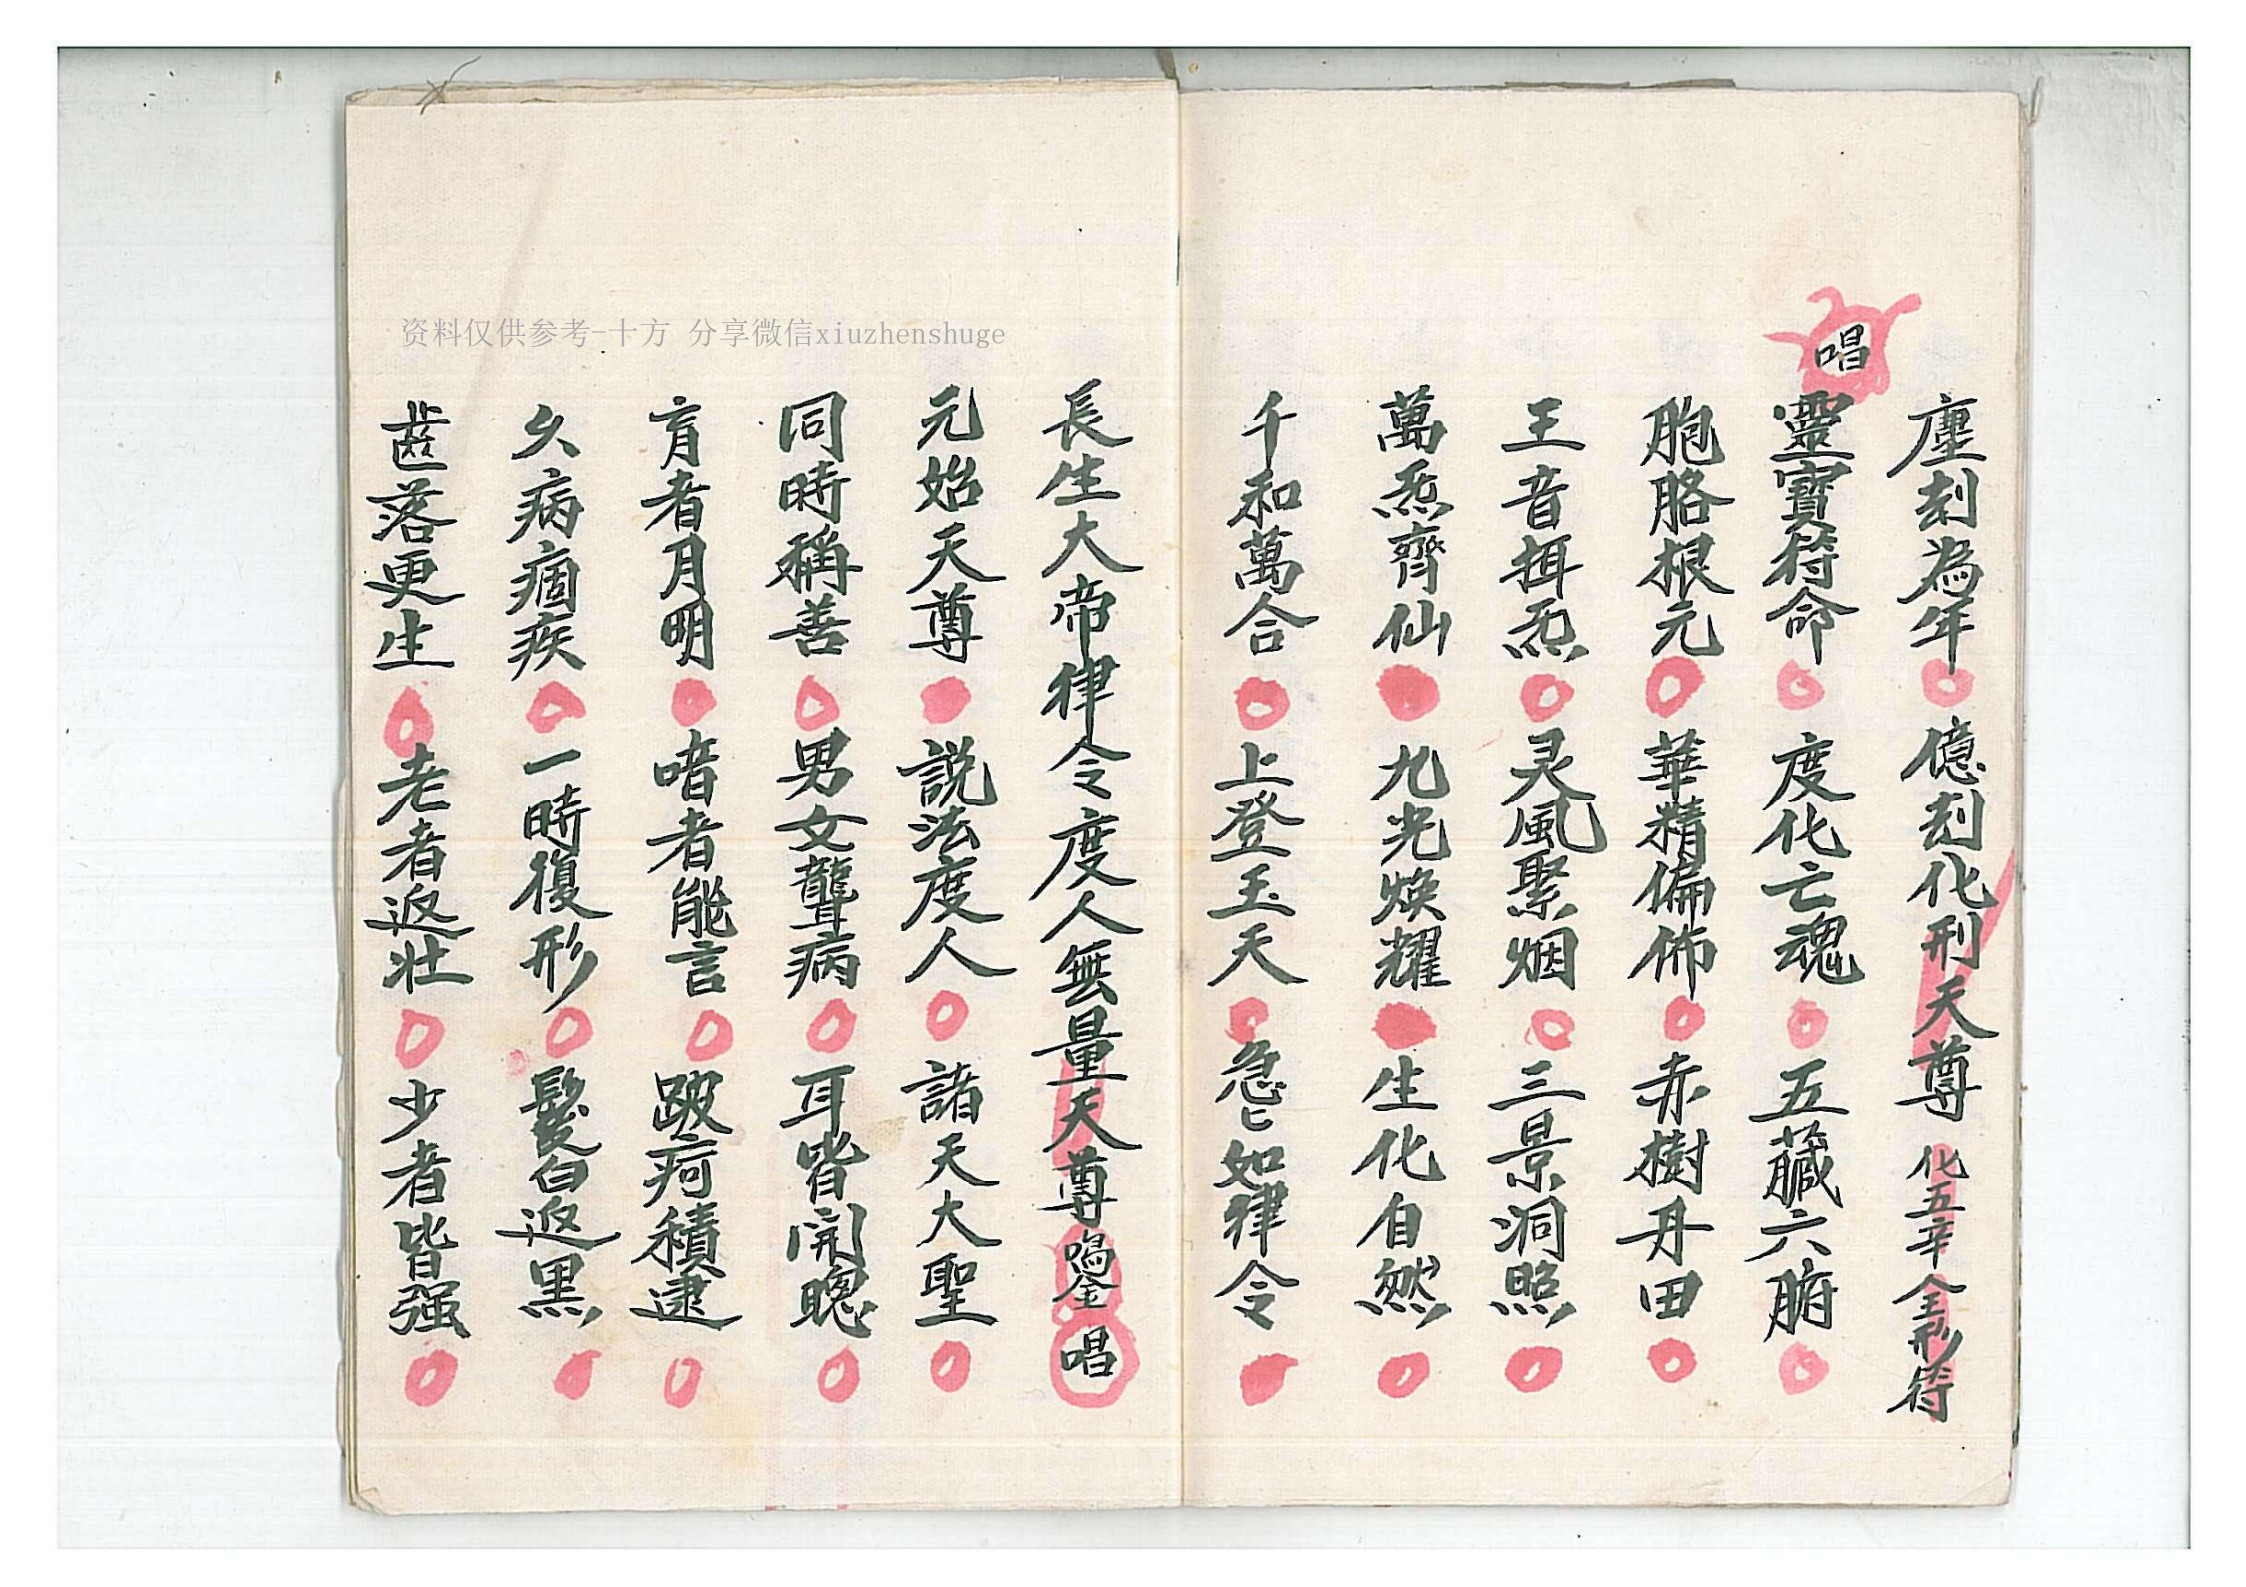 塵刻為年 億刻化刑天尊 化五辛全形符
唱
靈寶符命 度化亡魂 五臟六腑
胞胳根元 華精偏佈 赤樹丹田
王音揖炁 灵風聚烟 三景洞照
萬炁齊仙 九光煥耀 生化自然
千和萬合 上登玉天 急匕如律令
資料仅供参考-十方 分享微信xiuzhenshuge
長生大帝律令度人無量天尊 鳴金 唱
元始天尊 説法度人 諸天大聖
同時稱善 男女聾病 耳皆開聰
肓者月明 喑者能言 跛疴積逮
久病痼疾 一時復形 髮白返黑
齒落更生 老者返壯 少者皆强